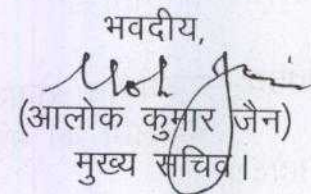 भवदीय,
(आलोक कुमार जैन)
मुख्य सचिव।